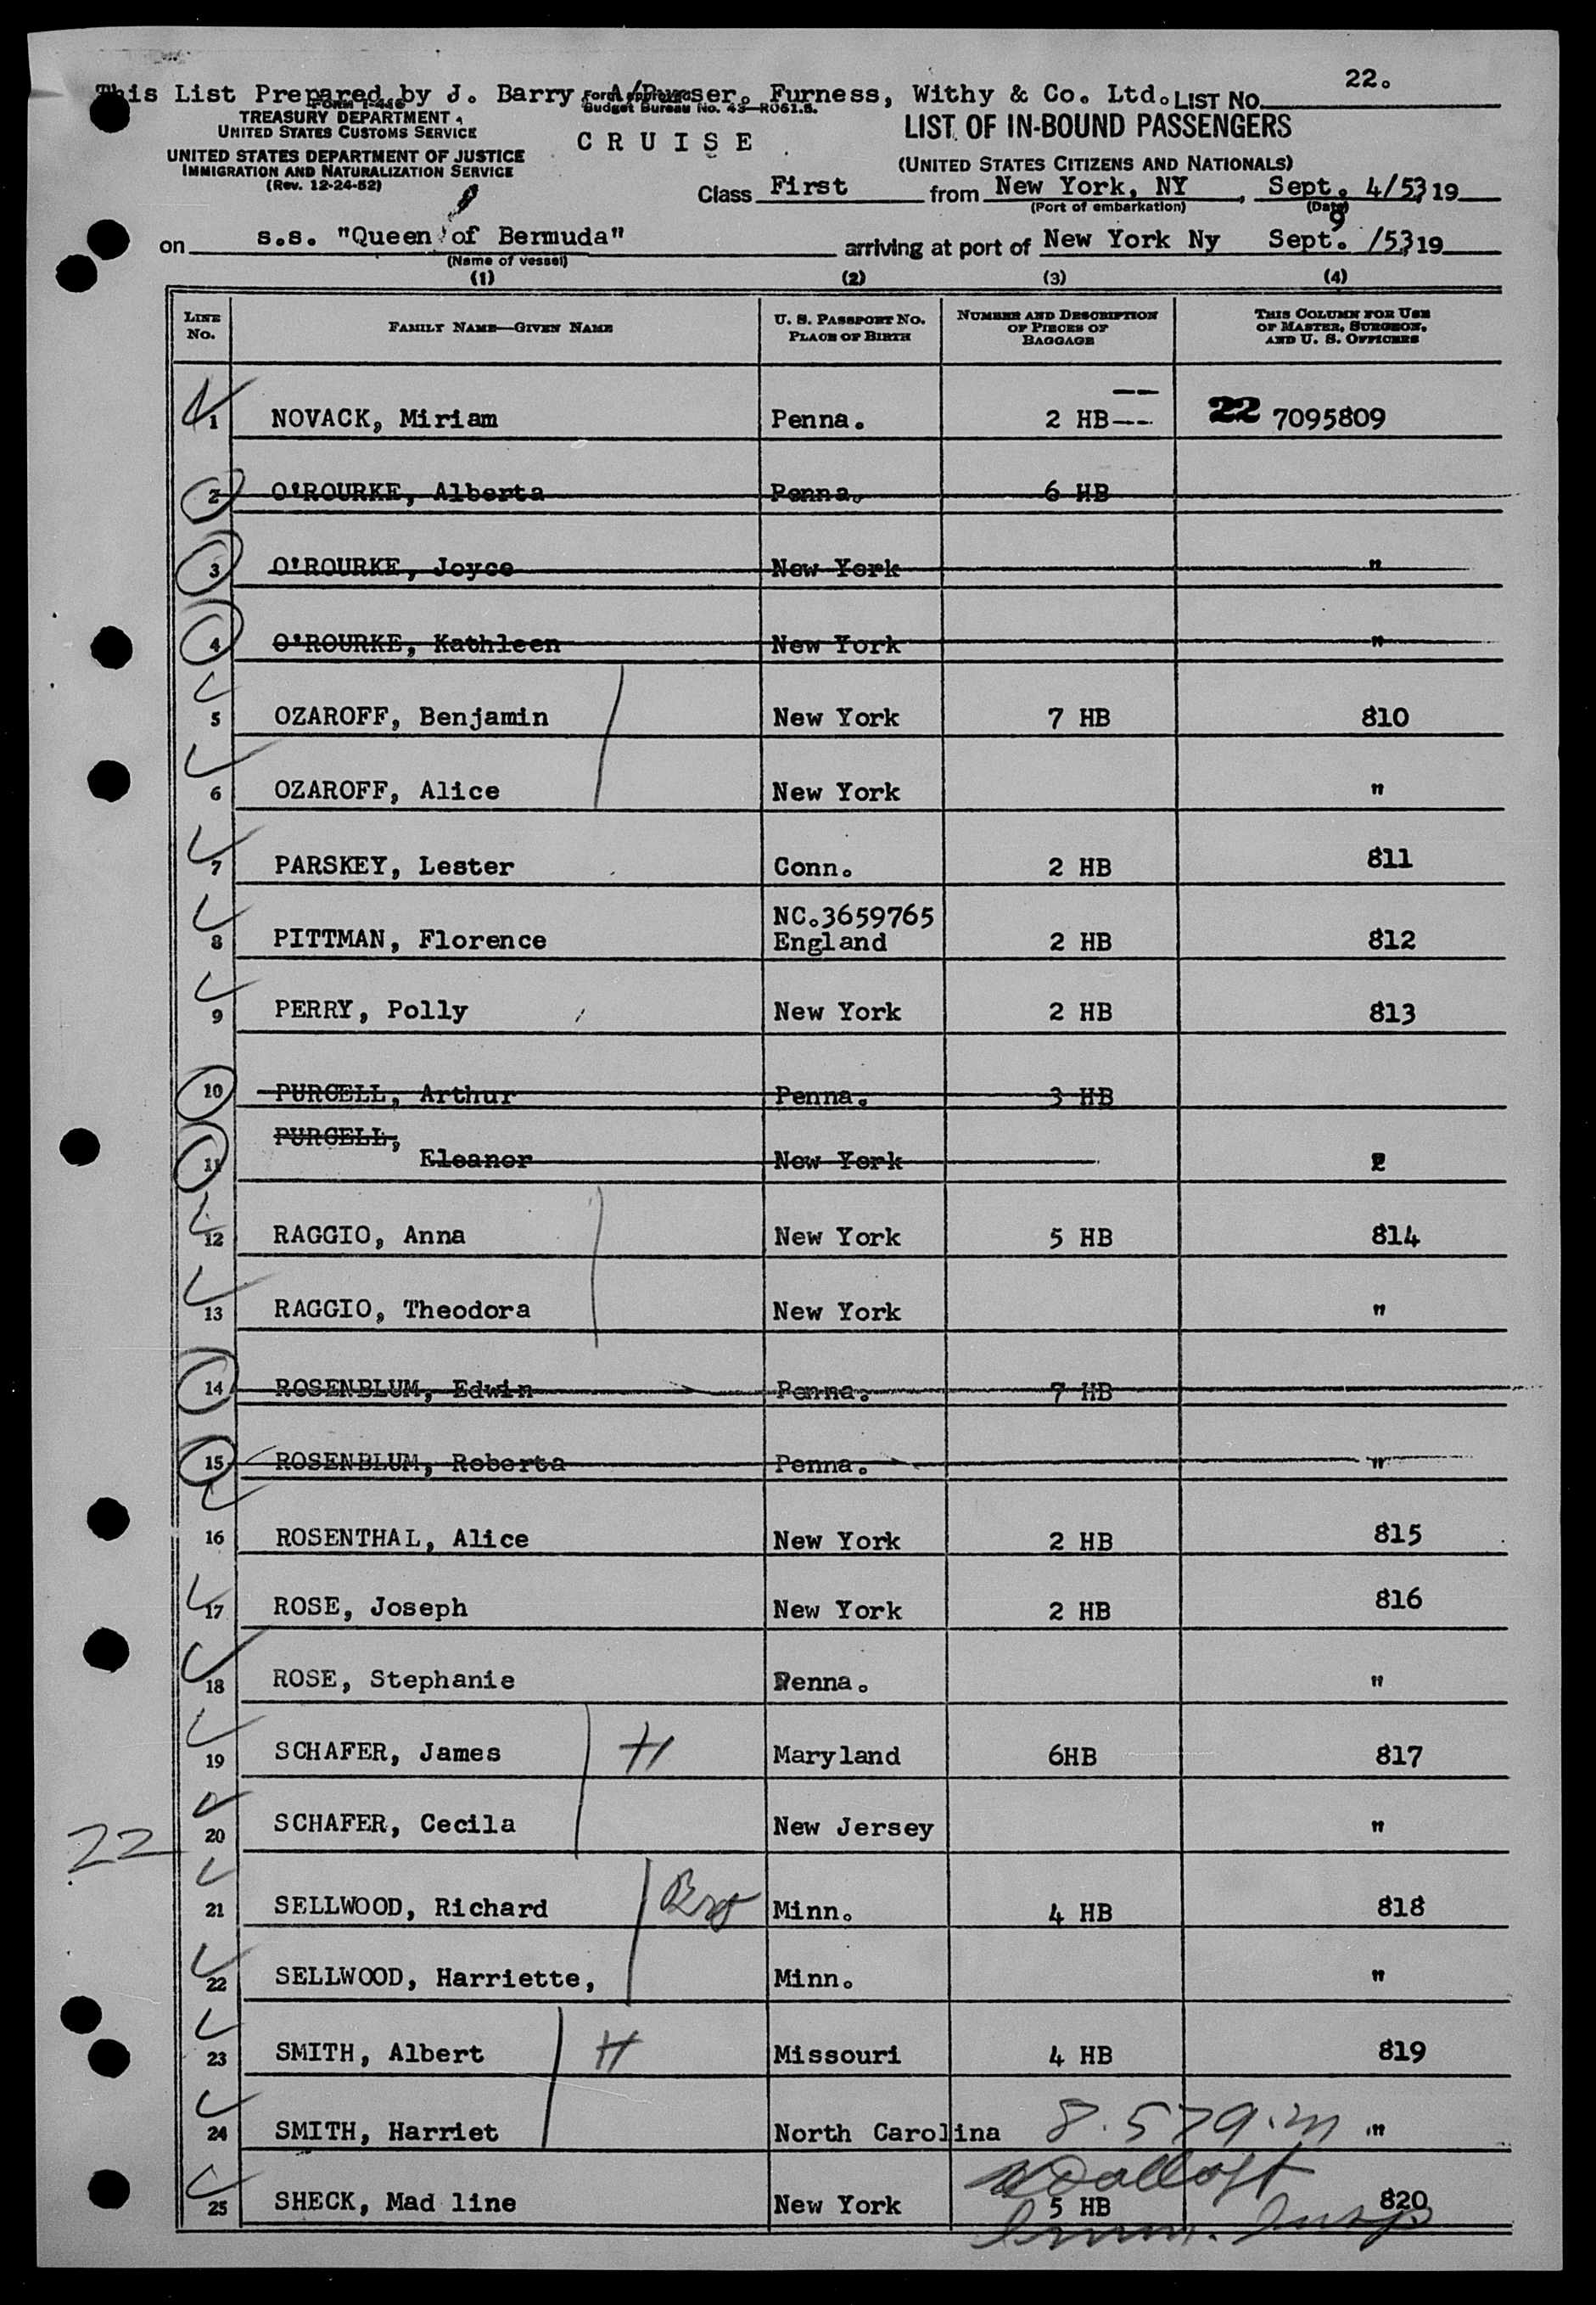 This List Prepared by J. Barry A/Purser. Furness, Withy & Co. Ltd. LIST NO. 22.
FORM I-416
TREASURY DEPARTMENT
UNITED STATES CUSTOMS SERVICE
UNITED STATES DEPARTMENT OF JUSTICE
IMMIGRATION AND NATURALIZATION SERVICE
(Rev. 12-24-52)
Form approved
Budget Bureau No. 43-R061.5.
CRUISE
LIST OF IN-BOUND PASSENGERS
(UNITED STATES CITIZENS AND NATIONALS)
Class First from New York, NY, Sept. 4/53, 19
(Port of embarkation) (Date)
on s.s. "Queen of Bermuda" arriving at port of New York Ny Sept. 9/53, 19
(Name of vessel)
(1) (2) (3) (4)
LINE NO. FAMILY NAME—GIVEN NAME U. S. PASSPORT NO. PLACE OF BIRTH NUMBER AND DESCRIPTION OF PIECES OF BAGGAGE THIS COLUMN FOR USE OF MASTER, SURGEON, AND U. S. OFFICERS
1 NOVACK, Miriam Penna. 2 HB-- 22 7095809
2 O'ROURKE, Alberta Penna. 6 HB
3 O'ROURKE, Joyce New York "
4 O'ROURKE, Kathleen New York "
5 OZAROFF, Benjamin New York 7 HB 810
6 OZAROFF, Alice New York "
7 PARSKEY, Lester Conn. 2 HB 811
NC.3659765
8 PITTMAN, Florence England 2 HB 812
9 PERRY, Polly New York 2 HB 813
10 PURCELL, Arthur Penna. 3 HB
PURCELL,
11 Eleanor New York
12 RAGGIO, Anna New York 5 HB 814
13 RAGGIO, Theodora New York "
14 ROSENBLUM, Edwin Penna. 7 HB
15 ROSENBLUM, Roberta Penna. "
16 ROSENTHAL, Alice New York 2 HB 815
17 ROSE, Joseph New York 2 HB 816
18 ROSE, Stephanie Penna. "
19 SCHAFER, James H Maryland 6HB 817
20 SCHAFER, Cecila New Jersey "
22
21 SELLWOOD, Richard Minn. 4 HB 818
22 SELLWOOD, Harriette, Minn. "
23 SMITH, Albert H Missouri 4 HB 819
24 SMITH, Harriet North Carolina "
25 SHECK, Mad line New York 5 HB 820
Imm. Insp